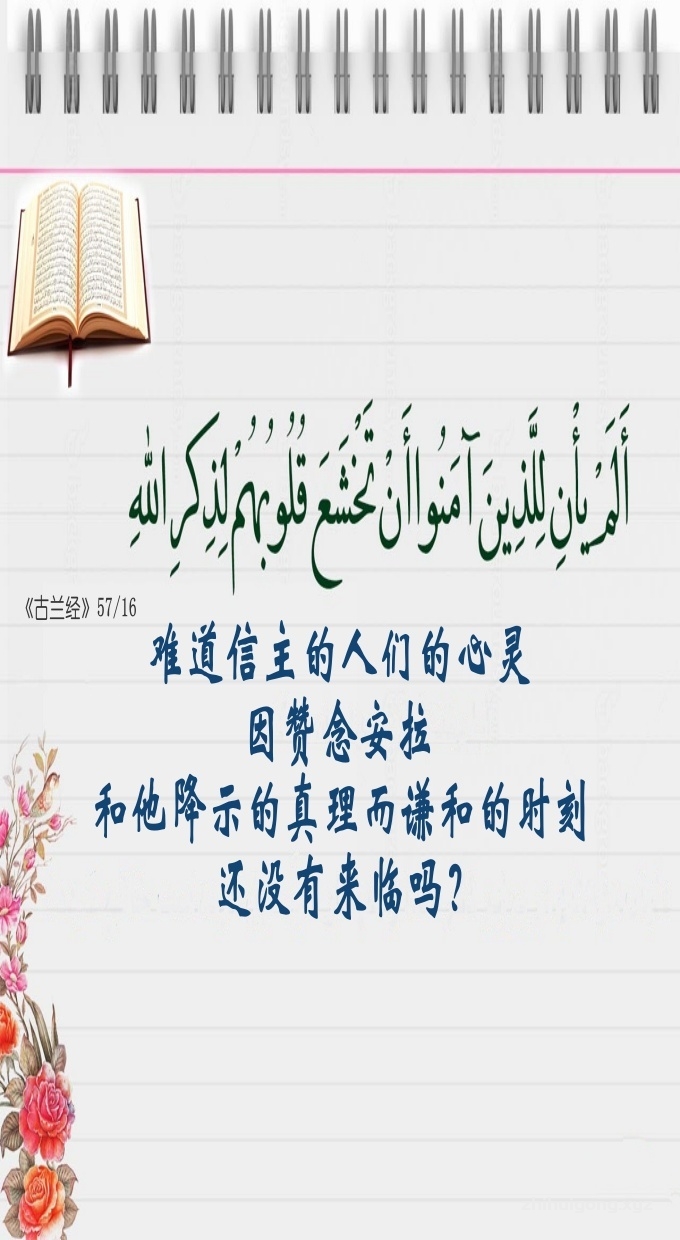 أَلَمْ يَأْنِ لِلَّذِينَ آمَنُوا أَنْ تَخْشَعَ قُلُوبُهُمْ لِذِكْرِ اللهِ
《古兰经》57/16
难道信主的人们的心灵
因赞念安拉
和他降示的真理而谦和的时刻
还没有来临吗?